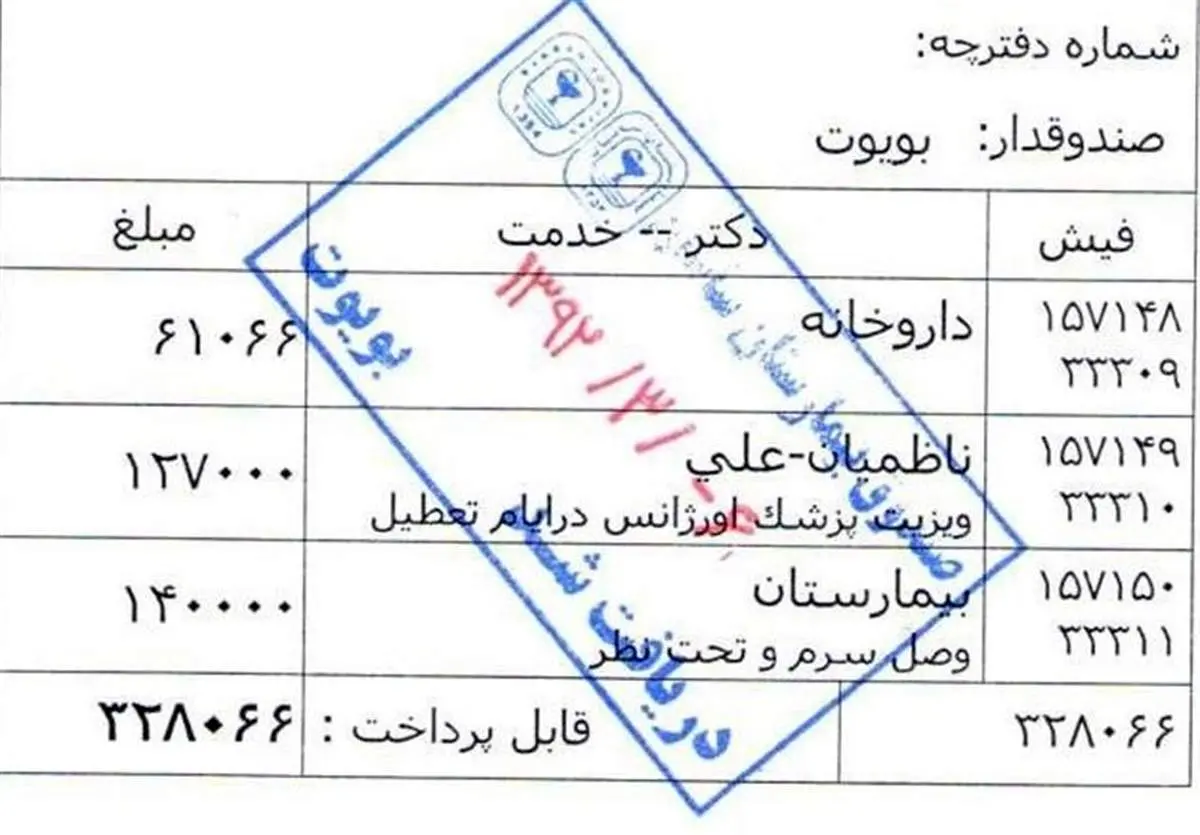 شماره دفترچه:
صندوقدار: بویوت
فیش دکتر -- خدمت مبلغ
۱۵۷۱۴۸ داروخانه ۶۱۰۶۶
۳۳۳۰۹
۱۵۷۱۴۹ ناظمیان-علي ۱۲۷۰۰۰
۳۳۳۱۰ ویزیت پزشك اورژانس درایام تعطیل
۱۵۷۱۵۰ بیمارستان ۱۴۰۰۰۰
۳۳۳۱۱ وصل سرم و تحت نظر
۳۲۸۰۶۶ قابل پرداخت : ۳۲۸۰۶۶
صندوق بیمارستان
۱۳۹۲/۳/
دریافت شد
بویوت